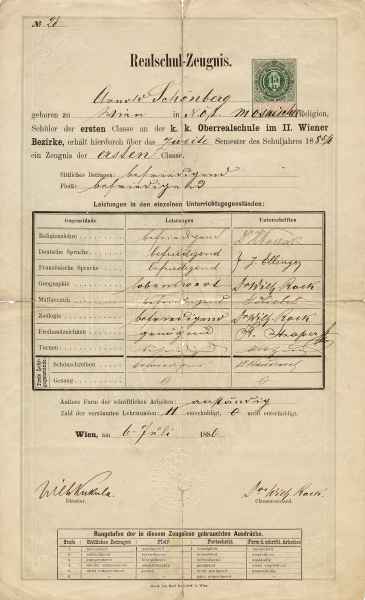 No 28
Realschul-Zeugnis.
15
Arnold Schönberg
geboren zu Wien in N.Ö., mosaischer Religion,
Schüler der ersten Classe an der k. k. Oberrealschule im II. Wiener
Bezirke, erhält hierdurch über das zweite Semester des Schuljahres 1885/6
ein Zeugnis der ersten Classe.
Sittliches Betragen: befriedigend
Fleiß: befriedigend
Leistungen in den einzelnen Unterrichtsgegenständen:
Gegenstände Leistungen Unterschriften
Religionslehre befriedigend
Deutsche Sprache befriedigend } J. Ellinger
Französische Sprache befriedigend
Geographie lobenswert Dr Wilh. Kock
Mathematik befriedigend
Zoologie befriedigend Dr Wilh. Kock
Freihandzeichnen genügend
Turnen
Freie Lehrgegenstände
Schönschreiben
Gesang 0 0
Äußere Form der schriftlichen Arbeiten: anständig
Zahl der versäumten Lehrstunden: 11 entschuldigt, 0 nicht entschuldigt.
Wien, am 6. Juli 1886.
Wilh. Kukula.
Director.
Dr Wilh. Kock.
Classenvorstand.
Rangstufen der in diesem Zeugnisse gebrauchten Ausdrücke.
Stufe Sittliches Betragen Fleiß Fortschritt Form d. schriftl. Arbeiten